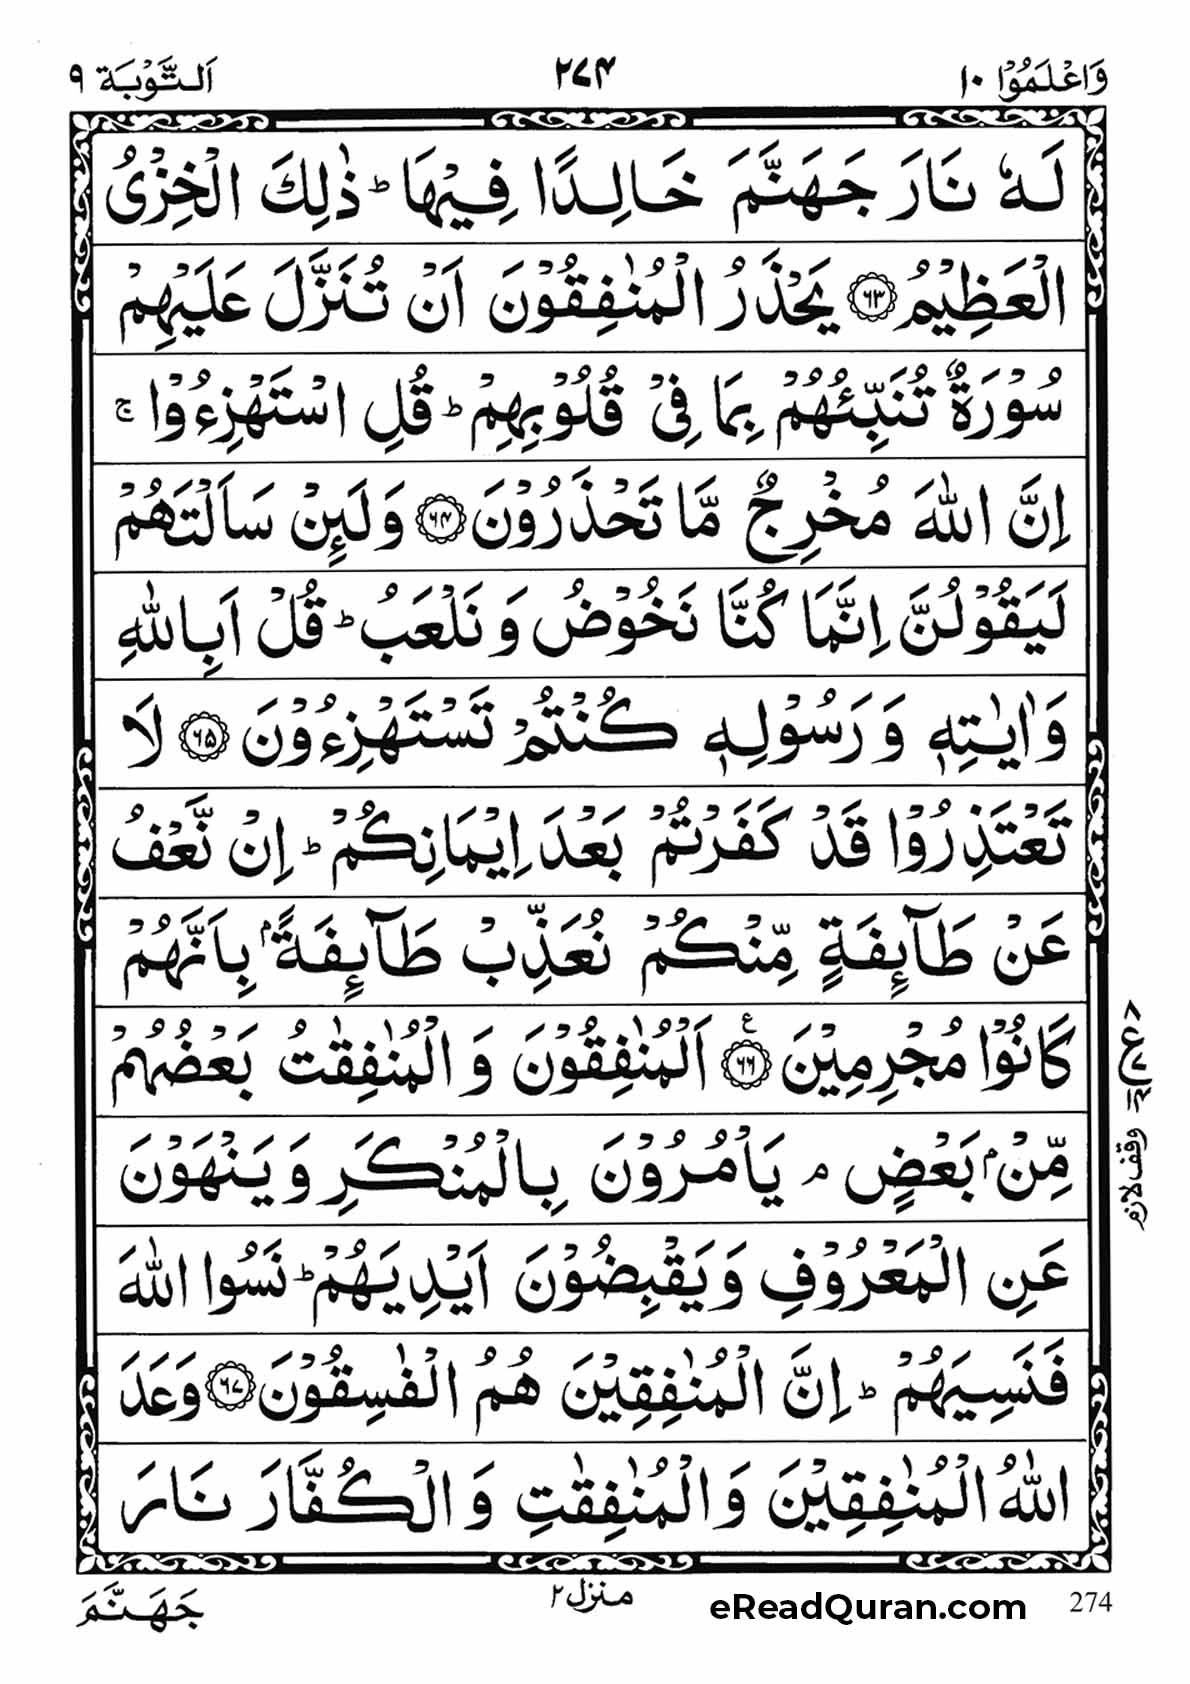 وَاعْلَمُوْۤا ۱۰ ۲۷۴ اَلتَّوْبَة ۹
لَهٗ نَارَ جَهَنَّمَ خَالِدًا فِيْهَا ؕ ذٰلِكَ الْخِزْىُ
الْعَظِيْمُ ﴿۶۳﴾ يَحْذَرُ الْمُنٰفِقُوْنَ اَنْ تُنَزَّلَ عَلَيْهِمْ
سُوْرَةٌ تُنَبِّئُهُمْ بِمَا فِىْ قُلُوْبِهِمْ ؕ قُلِ اسْتَهْزِءُوْا ۚ
اِنَّ اللّٰهَ مُخْرِجٌ مَّا تَحْذَرُوْنَ ﴿۶۴﴾ وَلَئِنْ سَاَلْتَهُمْ
لَيَقُوْلُنَّ اِنَّمَا كُنَّا نَخُوْضُ وَ نَلْعَبُ ؕ قُلْ اَبِاللّٰهِ
وَاٰيٰتِهٖ وَ رَسُوْلِهٖ كُنْتُمْ تَسْتَهْزِءُوْنَ ﴿۶۵﴾ لَا
تَعْتَذِرُوْا قَدْ كَفَرْتُمْ بَعْدَ اِيْمَانِكُمْ ؕ اِنْ نَّعْفُ
عَنْ طَآئِفَةٍ مِّنْكُمْ نُعَذِّبْ طَآئِفَةًۢ بِاَنَّهُمْ
كَانُوْا مُجْرِمِيْنَ ﴿۶۶﴾ ع اَلْمُنٰفِقُوْنَ وَ الْمُنٰفِقٰتُ بَعْضُهُمْ
مِّنْۢ بَعْضٍ ۘ يَاْمُرُوْنَ بِالْمُنْكَرِ وَ يَنْهَوْنَ
وقف لازم
عَنِ الْمَعْرُوْفِ وَ يَقْبِضُوْنَ اَيْدِيَهُمْ ؕ نَسُوا اللّٰهَ
فَنَسِيَهُمْ ؕ اِنَّ الْمُنٰفِقِيْنَ هُمُ الْفٰسِقُوْنَ ﴿۶۷﴾ وَعَدَ
اللّٰهُ الْمُنٰفِقِيْنَ وَ الْمُنٰفِقٰتِ وَ الْكُفَّارَ نَارَ
جَهَنَّمَ منزل ۲ eReadQuran.com 274